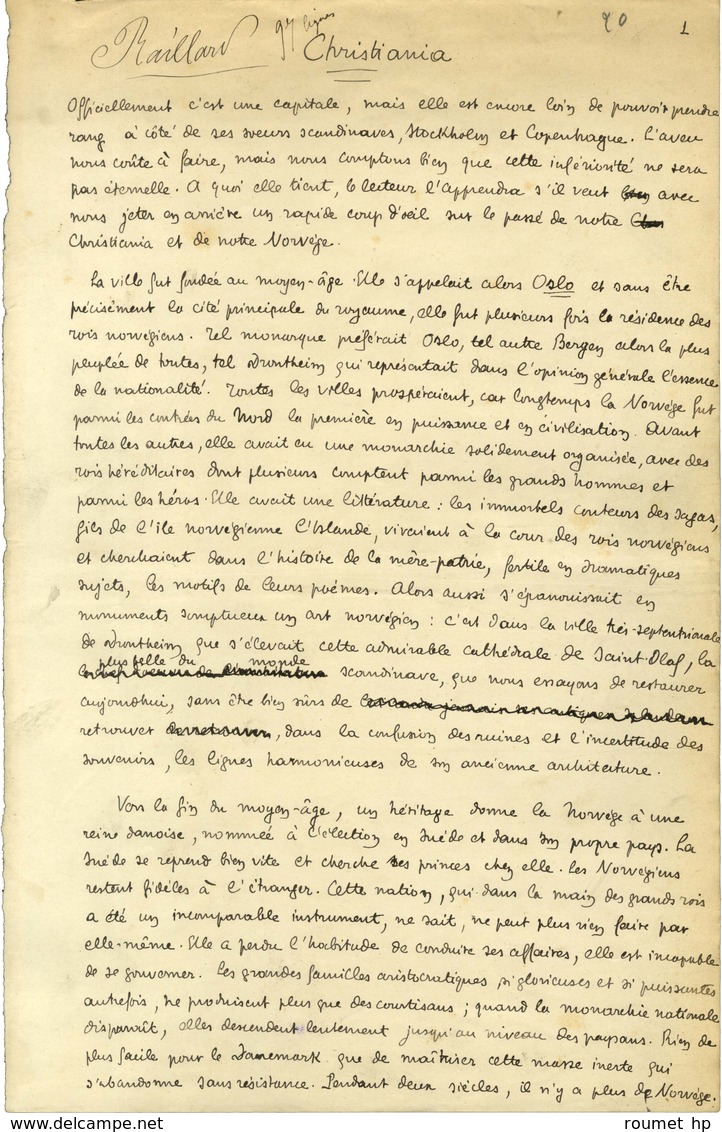 Raillard 97 lignes 20 1
Christiania
Officiellement c'est une capitale, mais elle est encore loin de pouvoir prendre
rang à côté de ses soeurs scandinaves, Stockholm et Copenhague. L'aveu
nous coûte à faire, mais nous comptons bien que cette infériorité ne sera
pas éternelle. A quoi elle tient, le lecteur l'apprendra s'il veut avec
nous jeter en arrière un rapide coup d'oeil sur le passé de notre
Christiania et de notre Norvège.
La ville fut fondée au moyen-âge. Elle s'appelait alors Oslo et sans être
précisément la cité principale du royaume, elle fut plusieurs fois la résidence des
rois norvégiens. Tel monarque préférait Oslo, tel autre Bergen alors la plus
peuplée de toutes, tel Drontheim qui représentait dans l'opinion générale l'essence
de la nationalité. Toutes les villes prospéraient, car longtemps la Norvège fut
parmi les contrées du Nord la première en puissance et en civilisation. Avant
toutes les autres, elle avait eu une monarchie solidement organisée, avec des
rois héréditaires dont plusieurs comptent parmi les grands hommes et
parmi les héros. Elle avait une littérature : les immortels conteurs des sagas,
fils de l'île norvégienne l'Islande, vivaient à la cour des rois norvégiens
et cherchaient dans l'histoire de la mère-patrie, fertile en dramatiques
sujets, les motifs de leurs poèmes. Alors aussi s'épanouissait en
monuments somptueux un art norvégien : c'est dans la ville très-septentrionale
de Drontheim que s'élevait cette admirable cathédrale de Saint-Olaf, la
plus belle du monde
scandinave, que nous essayons de restaurer
aujourdhui, sans être bien sûrs de
retrouver, dans la confusion des ruines et l'incertitude des
souvenirs, les lignes harmonieuses de son ancienne architecture.
Vers la fin du moyen-âge, un héritage donne la Norvège à une
reine danoise, nommée à l'élection en Suède et dans son propre pays. La
Suède se reprend bien vite et cherche ses princes chez elle. Les Norvégiens
restent fidèles à l'étranger. Cette nation, qui dans la main des grands rois
a été un incomparable instrument, ne sait, ne peut plus rien faire par
elle-même. Elle a perdu l'habitude de conduire ses affaires, elle est incapable
de se gouverner. Les grandes familles aristocratiques, si glorieuses et si puissantes
autrefois, ne produisent plus que des courtisans ; quand la monarchie nationale
disparaît, elles descendent lentement jusqu'au niveau des paysans. Rien de
plus facile pour le Danemark que de maîtriser cette masse inerte qui
s'abandonne sans résistance. Pendant deux siècles, il n'y a plus de Norvège.
roumet hp